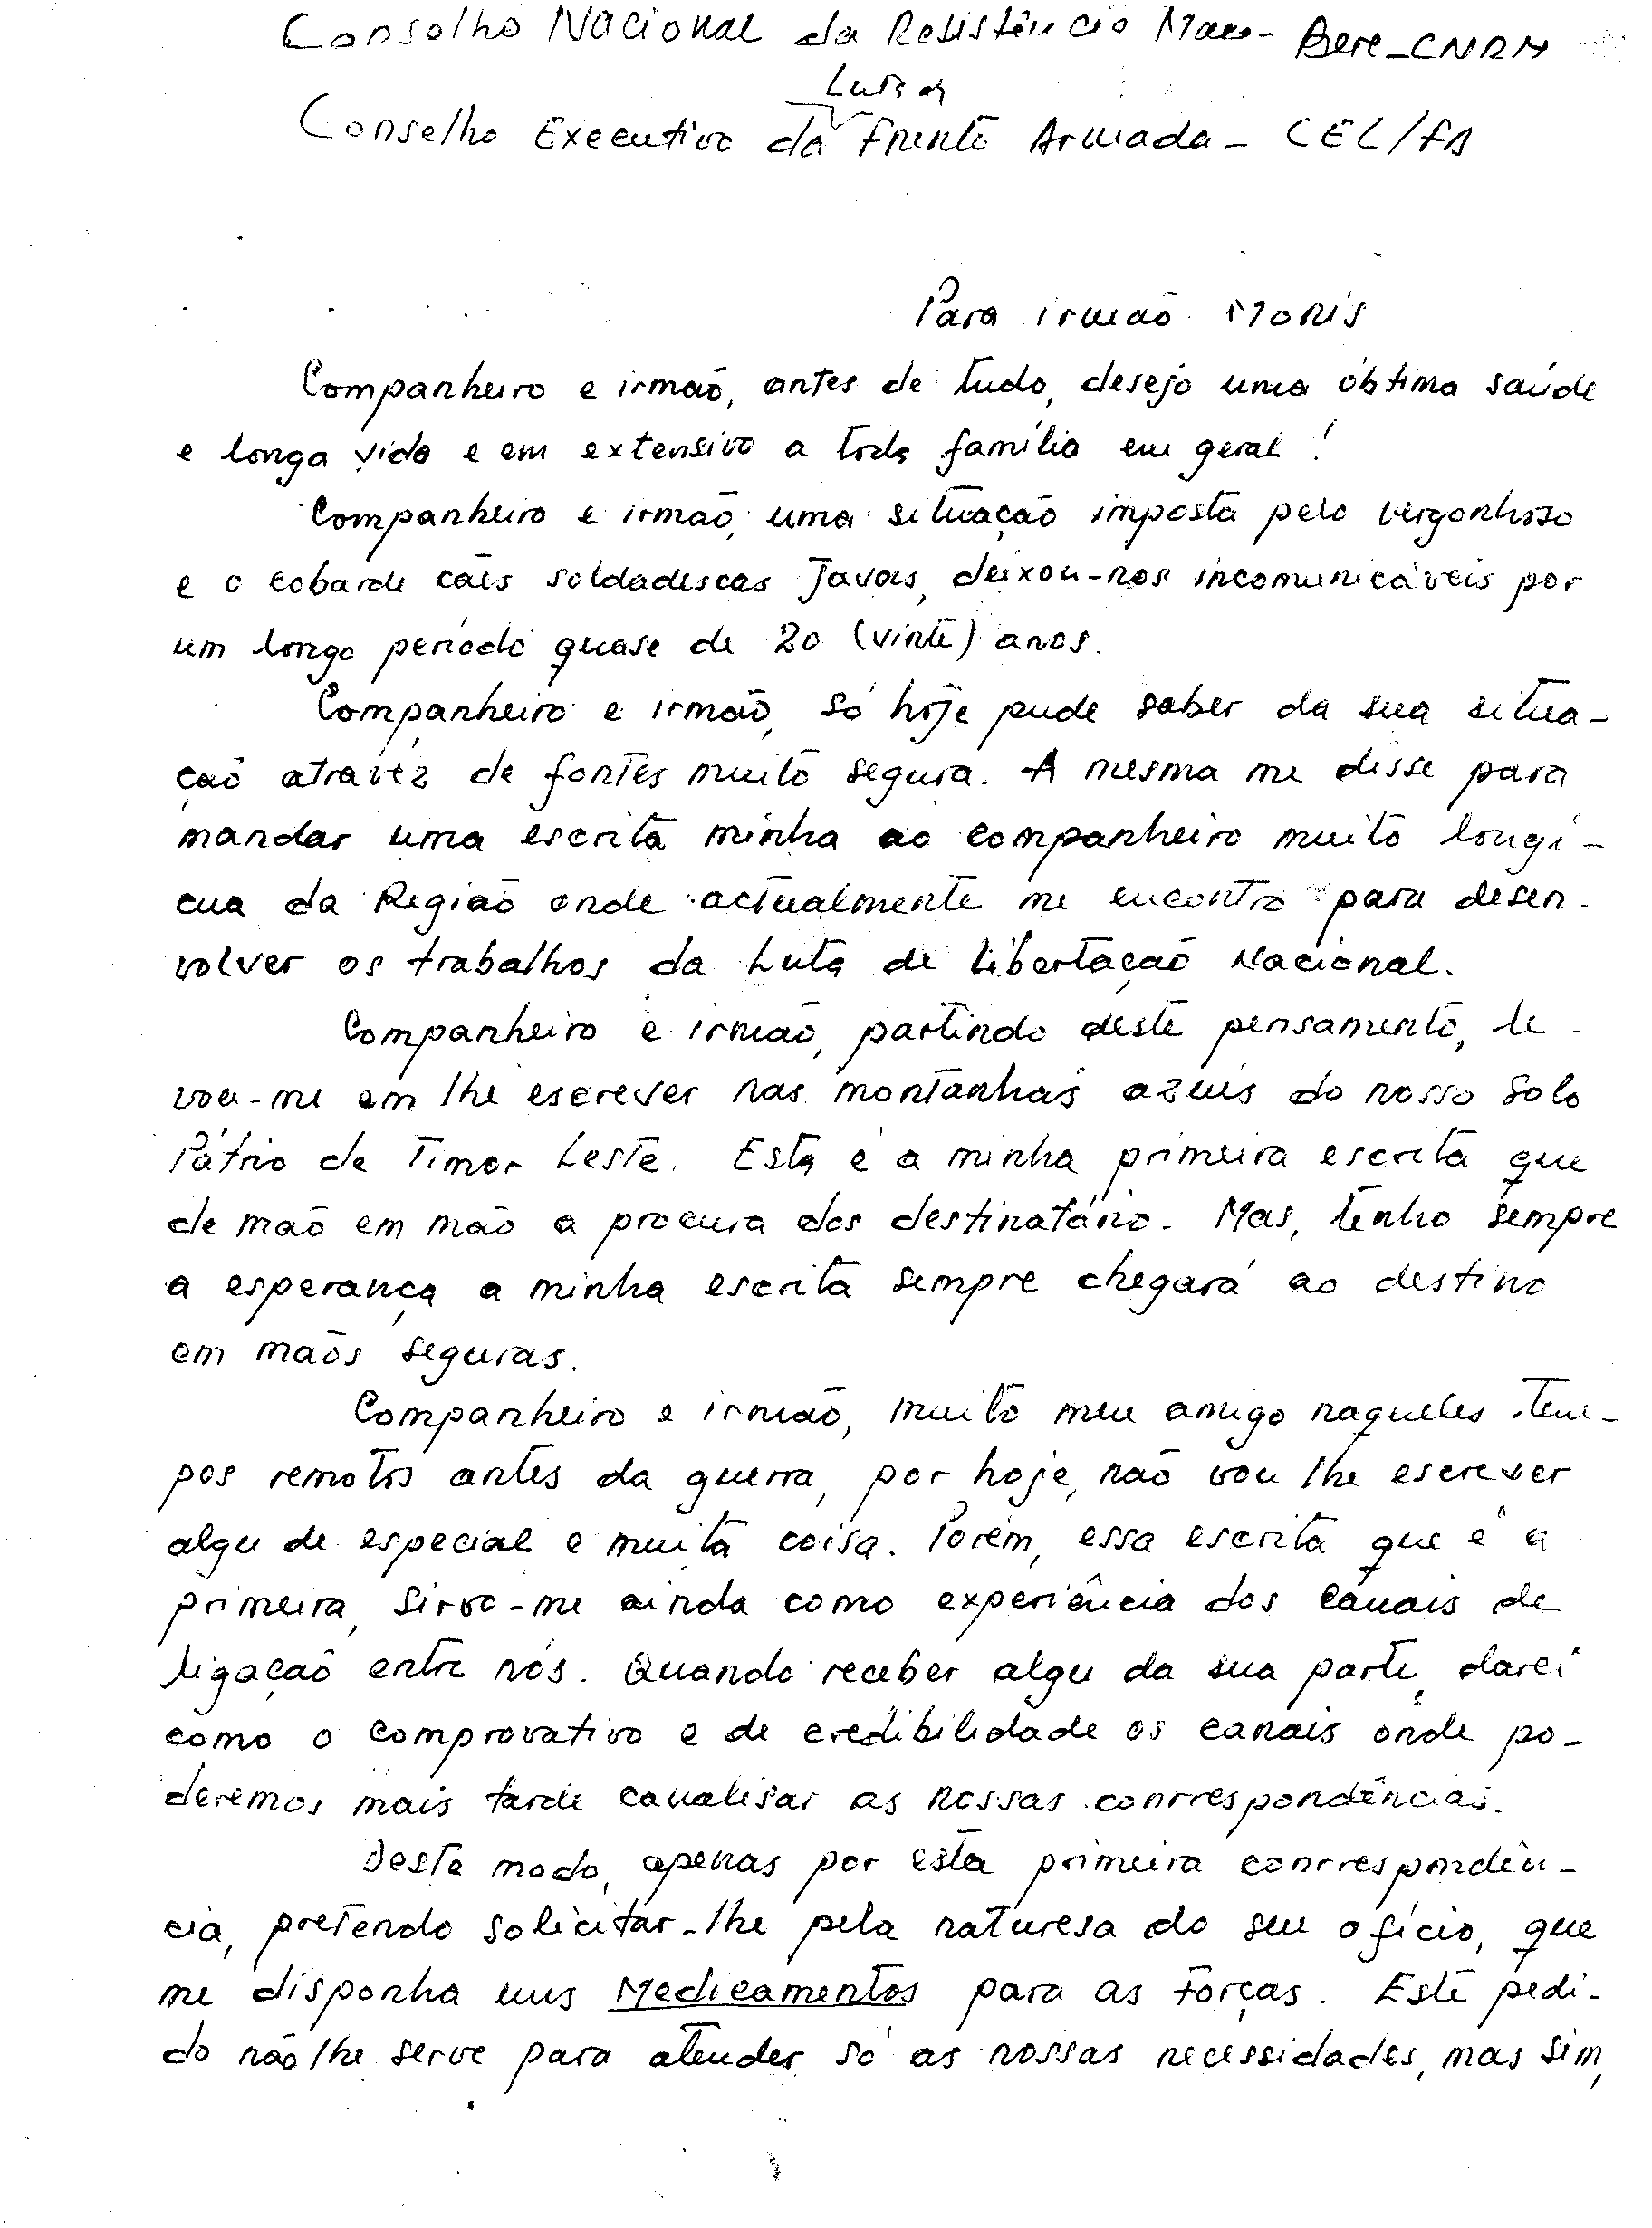 Conselho Nacional da Resistência Mau-Bere-CNRM
Luta
Conselho Executivo da Frente Armada - CEL/FA
Para irmão Monis
Companheiro e irmão, antes de tudo, desejo uma óbtima saúde
e longa vida e em extensivo a toda família em geral!
Companheiro e irmão, uma situação imposta pelo vergonhoso
e o cobarde cães soldadescas Javas, deixou-nos incomunicáveis por
um longo período quase de 20 (vinte) anos.
Companheiro e irmão, só hoje pude saber da sua situa-
ção atravéz de fontes muito segura. A mesma me disse para
mandar uma escrita minha ao companheiro muito longí-
cua da Região onde actualmente me encontro para desen-
volver os trabalhos da Luta de Libertação Nacional.
Companheiro e irmão, partindo deste pensamento, le-
vou-me em lhe escrever nas montanhas azuis do nosso Solo
Pátrio de Timor Leste. Esta é a minha primeira escrita que
de mão em mão a procura dos destinatário. Mas, tenho sempre
a esperança a minha escrita sempre chegará ao destino
em mãos seguras.
Companheiro e irmão, muito meu amigo naqueles tem-
pos remotos antes da guerra, por hoje, não vou lhe escrever
algu de especial e muita coisa. Porém, essa escrita que é a
primeira, sirvo-me ainda como experiência dos canais de
ligação entre nós. Quando receber algu da sua parte, darei
como o comprovativo e de credibilidade os canais onde po-
deremos mais tarde canalisar as nossas conrrespondências.
Deste modo, apenas por esta primeira conrrespondên-
cia, pretendo solicitar-lhe pela naturesa do seu ofício, que
me disponha uns Medicamentos para as Forças. Este pedi-
do não lhe serve para atender só as nossas necessidades, mas sim,